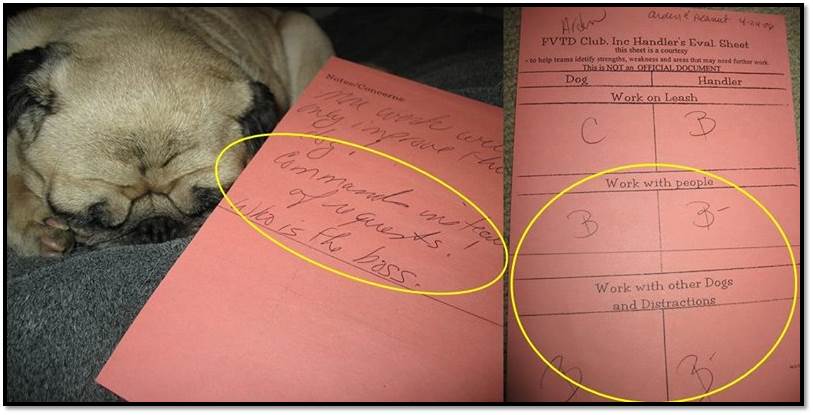 Notes/Concerns
More work will
only improve the
dog!
Commands instead
of requests.
Who is the boss.
Arden
Arden & Peanut 4-24-06
FVTD Club, Inc Handler's Eval. Sheet
this sheet is a courtesy
- to help teams idetify strengths, weakness and areas that may need further work
This is NOT an OFFICIAL DOCUMENT
Dog Handler
Work on Leash
C B
Work with people
B B-
Work with other Dogs
and Distractions
B B-